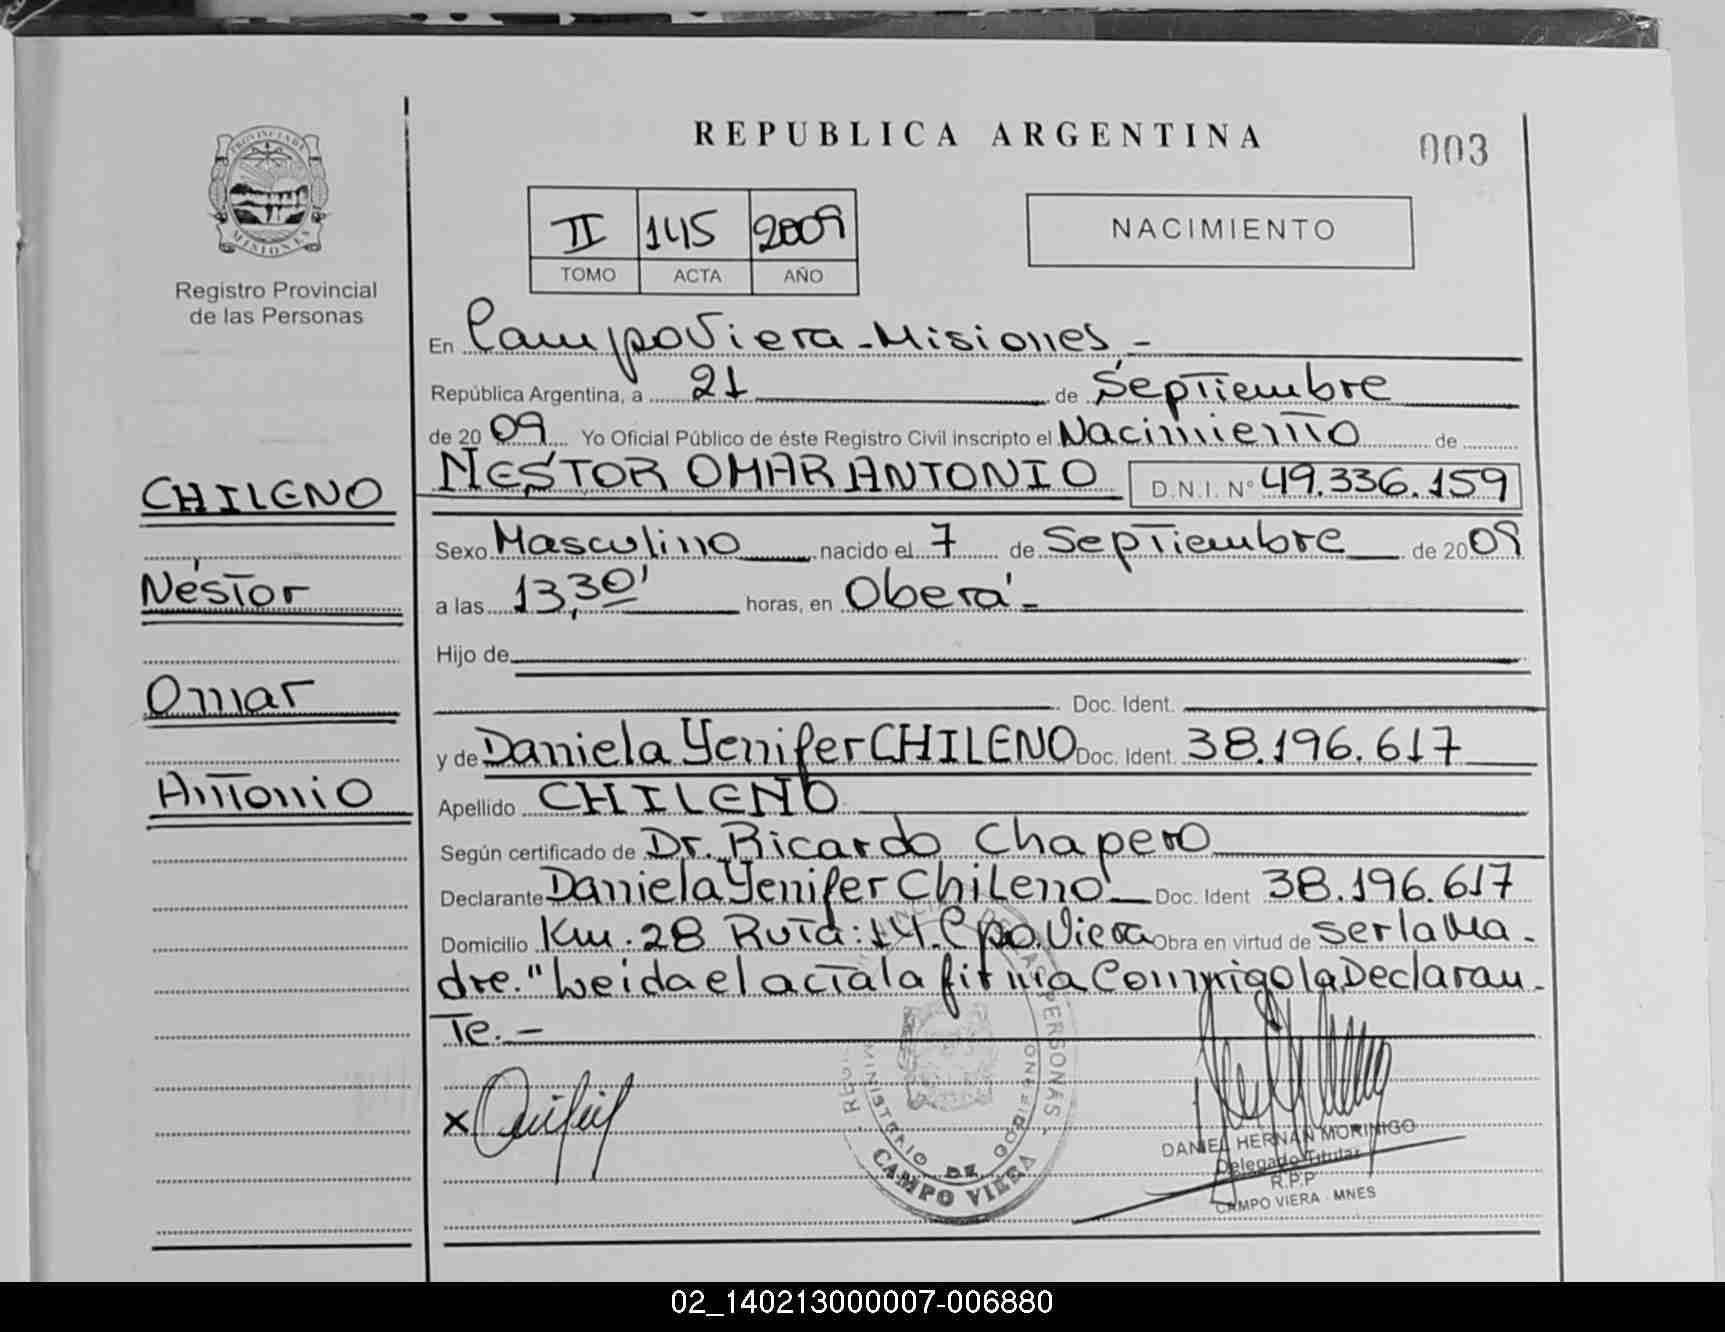 REPUBLICA ARGENTINA
003
PROVINCIA DE MISIONES
Registro Provincial
de las Personas
II 145 2009
TOMO ACTA AÑO
NACIMIENTO
En Campo Viera - Misiones -
República Argentina, a 21 de Septiembre
de 2009 Yo Oficial Público de éste Registro Civil inscripto el Nacimiento de
NESTOR OMAR ANTONIO D.N.I. Nº 49.336.159
CHILENO
Sexo Masculino nacido el 7 de Septiembre de 2009
Néstor
a las 13,30' horas, en Oberá -
Hijo de
Omar
Doc. Ident.
y de Daniela Yenifer CHILENO Doc. Ident. 38.196.617
Antonio
Apellido CHILENO
Según certificado de Dr. Ricardo Chapero
Declarante Daniela Yenifer Chileno - Doc. Ident 38.196.617
Domicilio Km. 28 Ruta: 14. Cpo. Viera Obra en virtud de ser la Ma-
dre. "Leida el acta la firma Conmigo la Declaran-
Te. -
x
REG PROVINCIAL DE LAS PERSONAS -
MINISTERIO DE GOBIERNO
CAMPO VIERA
DANIEL HERNAN MORINIGO
Delegado Titular
R.P.P
CAMPO VIERA - MNES
02_140213000007-006880